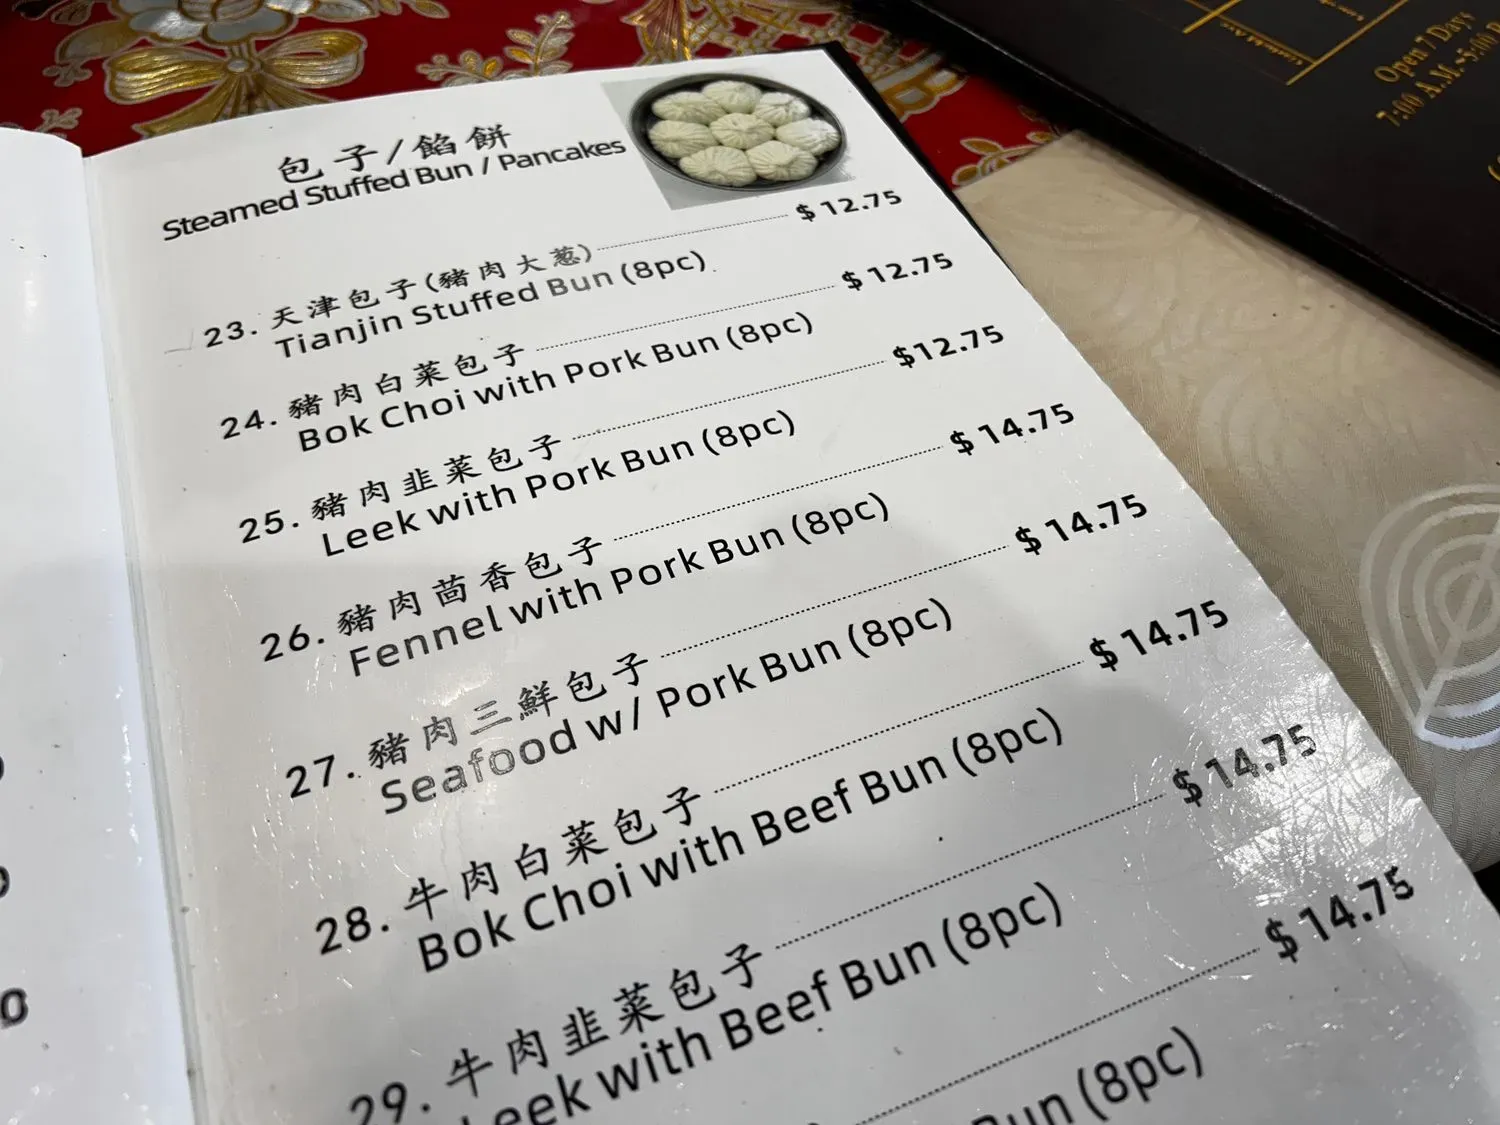 包子/餡餅
Steamed Stuffed Bun / Pancakes
23. 天津包子(豬肉大葱) $12.75
Tianjin Stuffed Bun (8pc)
24. 豬肉白菜包子 $12.75
Bok Choi with Pork Bun (8pc)
25. 豬肉韭菜包子 $12.75
Leek with Pork Bun (8pc)
26. 豬肉茴香包子 $14.75
Fennel with Pork Bun (8pc)
27. 豬肉三鮮包子 $14.75
Seafood w/ Pork Bun (8pc)
28. 牛肉白菜包子 $14.75
Bok Choi with Beef Bun (8pc)
29. 牛肉韭菜包子 $14.75
Leek with Beef Bun (8pc)
$14.75
Bun (8pc)
Open 7 Days
7:00 A.M.-5:00 P